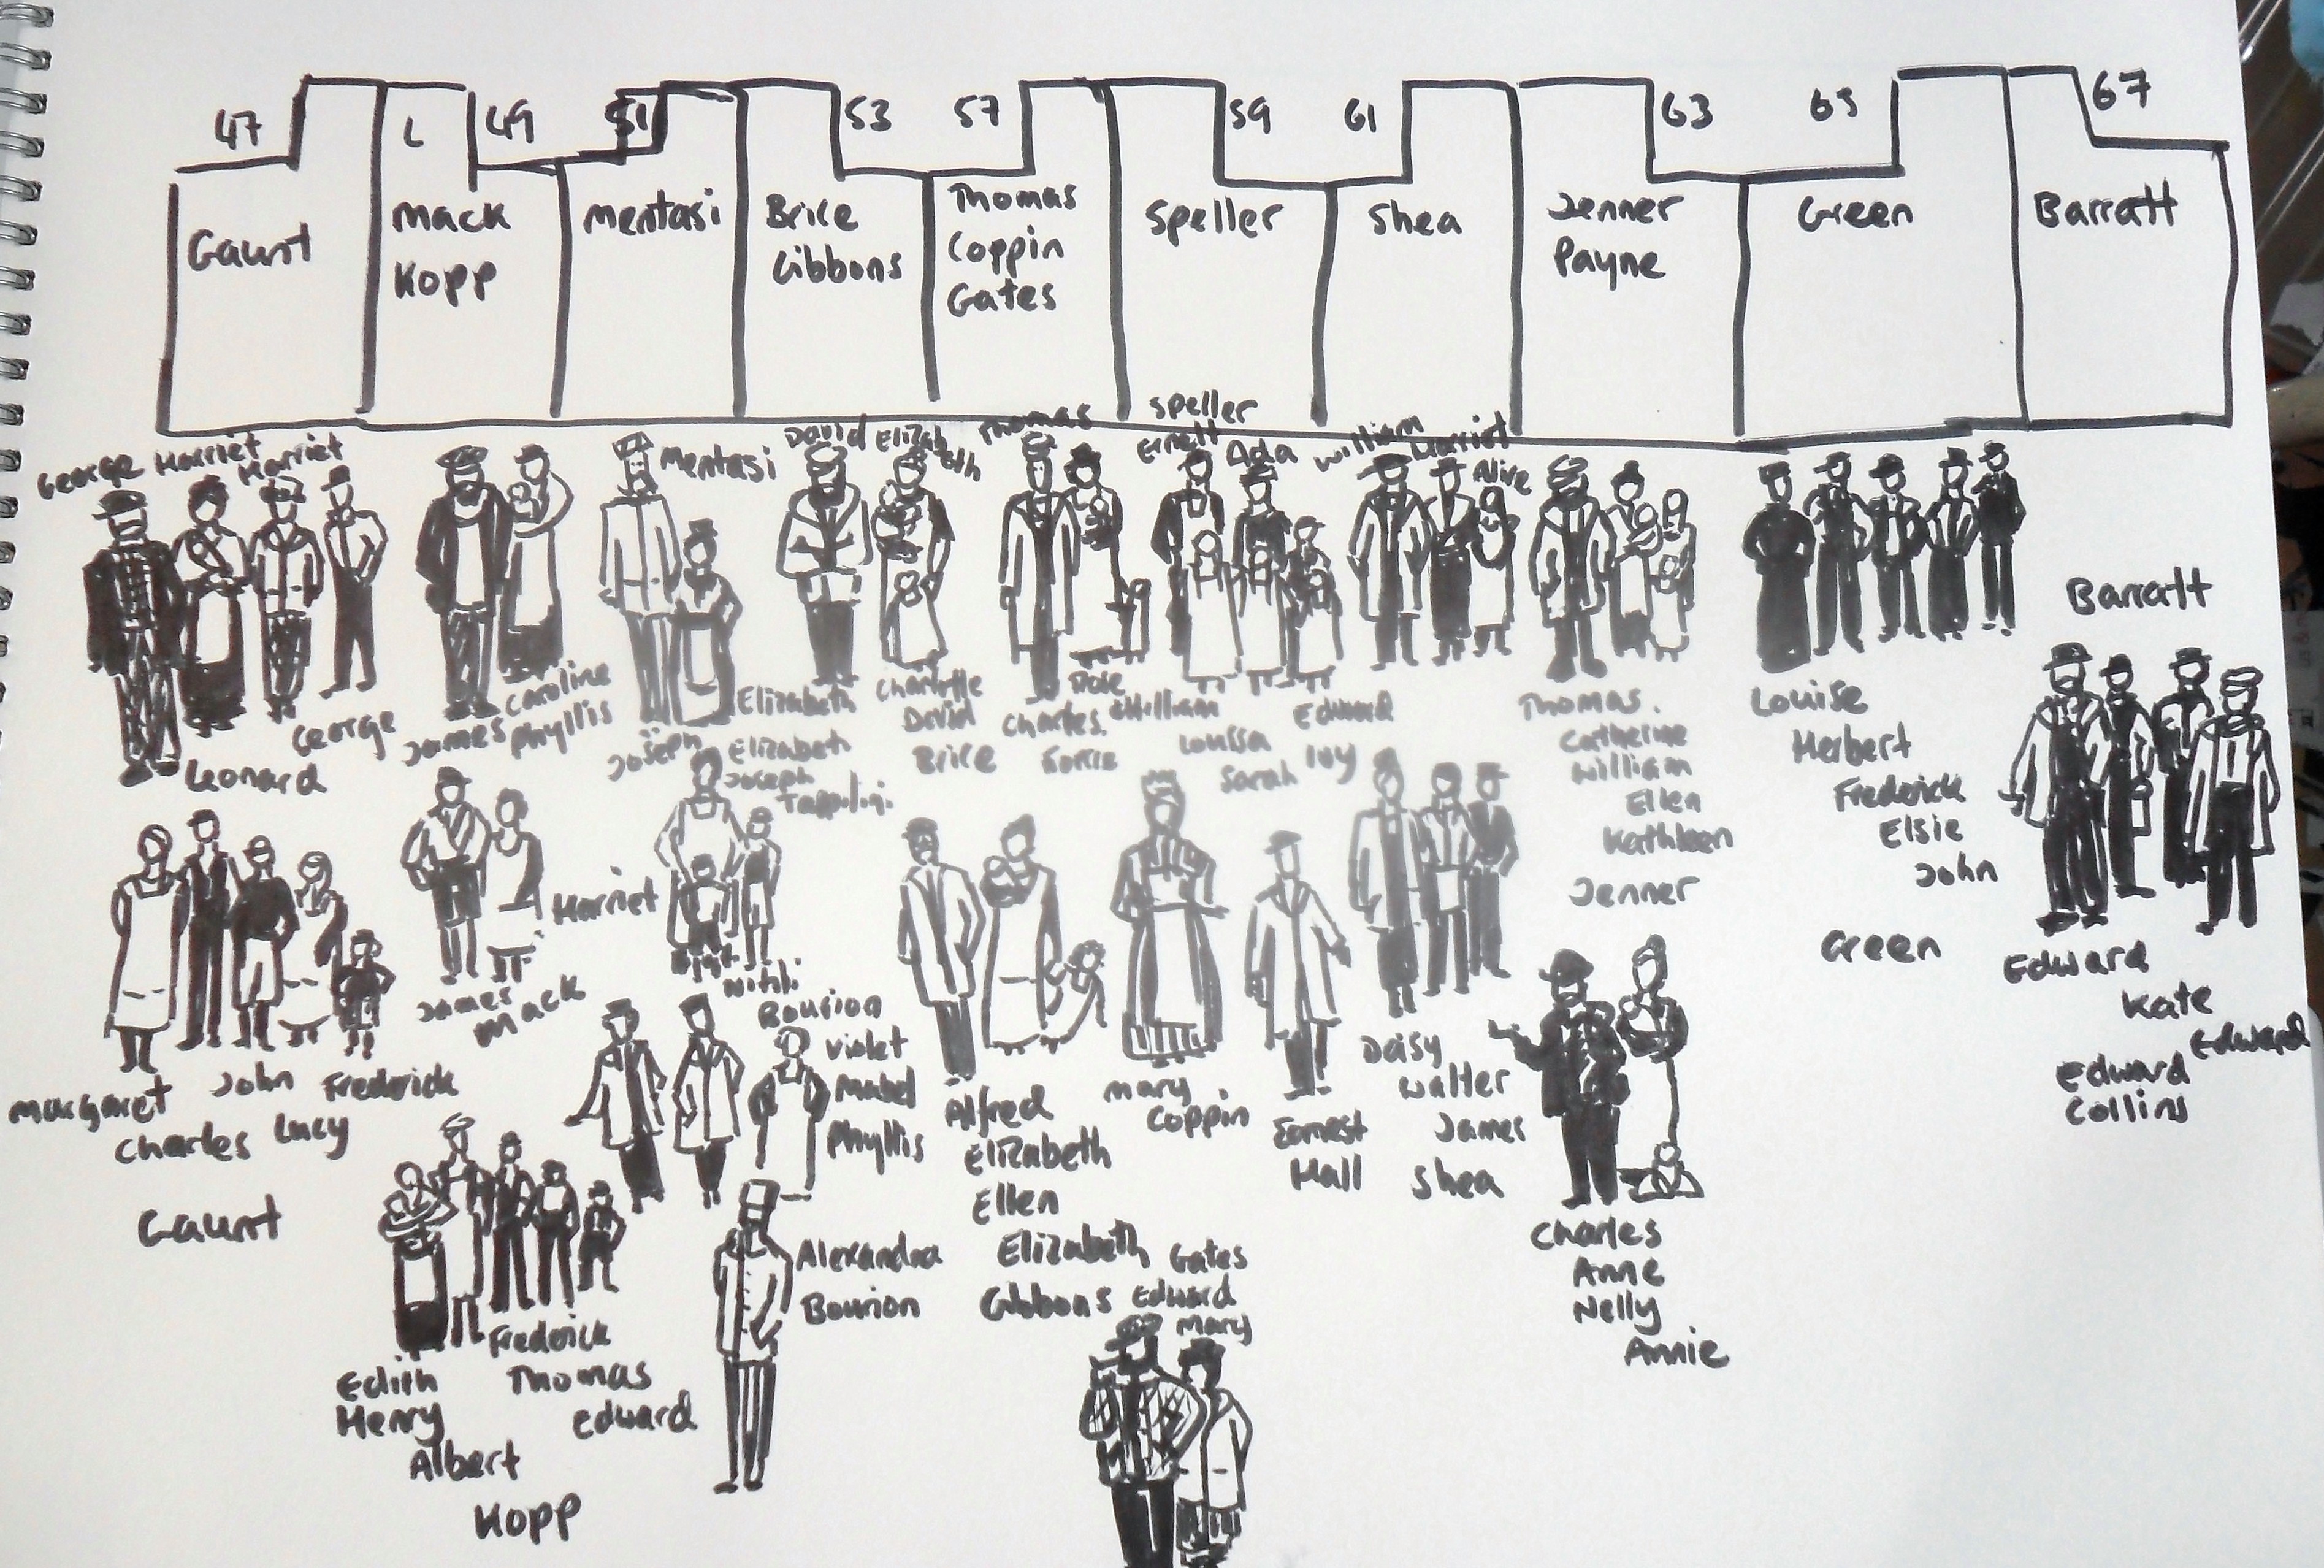 47
L
49
51
53
57
59
61
63
65
67
Gaunt
Mack
Kopp
Mentasi
Brice
Gibbons
Thomas
Coppin
Gates
Speller
Shea
Jenner
Payne
Green
Barratt
George Harriet Harriet
George
Leonard
Margaret
Charles
John
Lucy
Frederick
Gaunt
James
Caroline
Phyllis
James
Mack
Harriet
Edith
Henry
Albert
Frederick
Thomas
Edward
Kopp
Mentasi
Joseph
Elizabeth
Elizabeth
Joseph
Bourion
Violet
Mabel
Phyllis
Alexandra
Bourion
David Elizabeth
Charlotte
David
Brice
Alfred
Elizabeth
Ellen
Elizabeth
Gibbons
Thomas
Charles
William
Mary
Coppin
Gates
Edward
Mary
Speller
Ernest
Ada
Louisa
Sarah
Edward
Ivy
Ernest
Hall
William Harriet
Alive
Daisy
Walter
James
Shea
Thomas.
Catherine
William
Ellen
Kathleen
Jenner
Charles
Anne
Nelly
Annie
Louise
Herbert
Frederick
Elsie
John
Green
Barratt
Edward
Kate
Edward
Edward
Collins